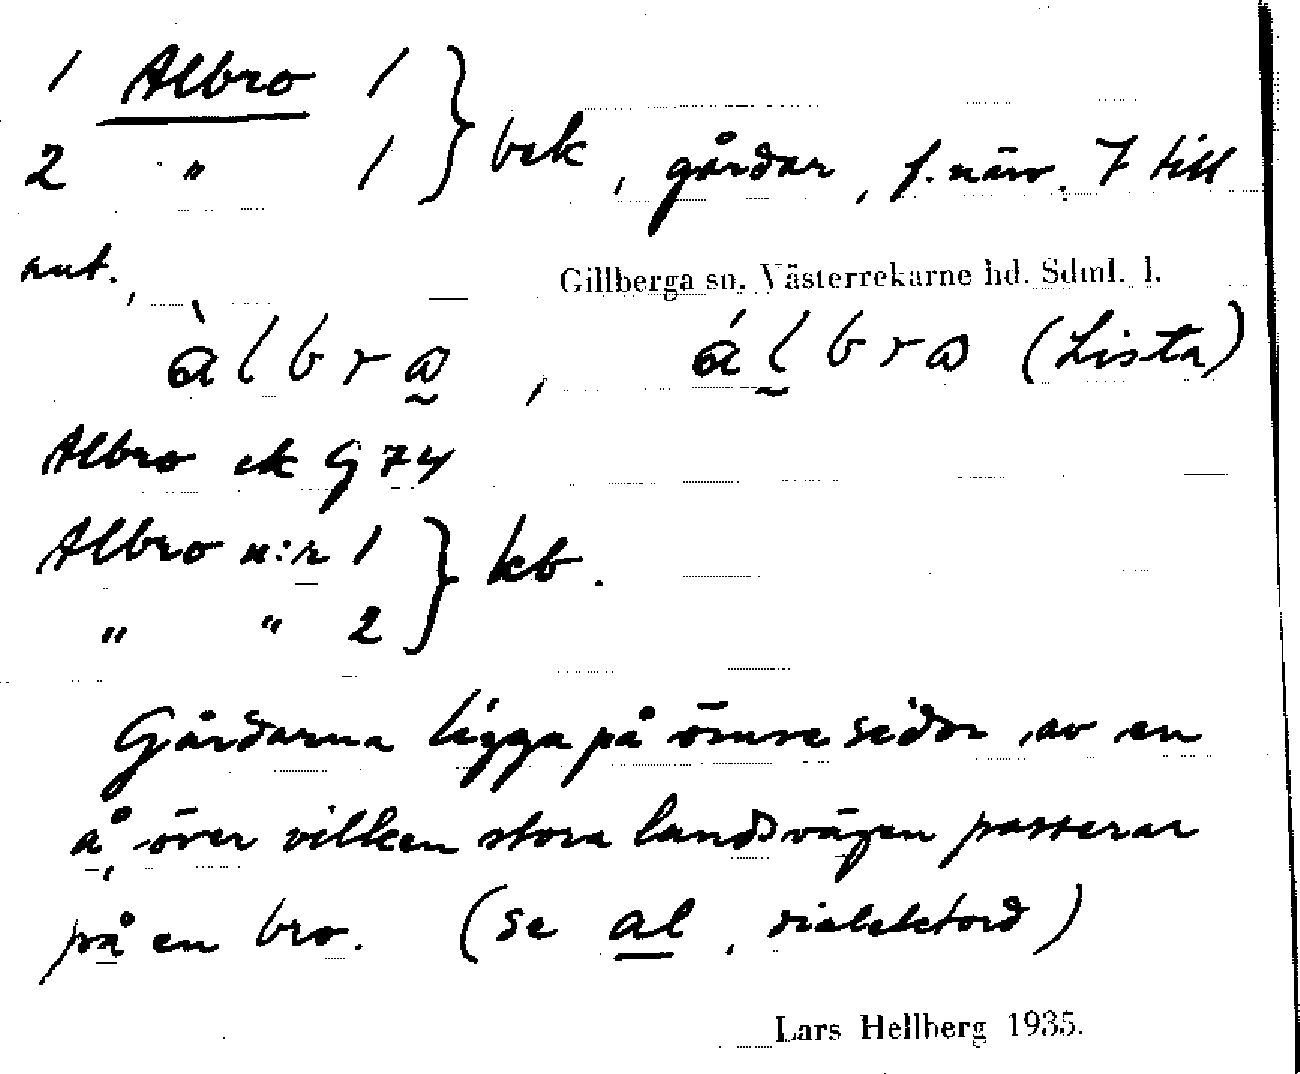 1 Albro 1
2 " 1 } bek, gårdar, f. närv. 7 till
ant.,
Gillberga sn. Västerrekarne hd. Sdml. l.
àlbrω̰, ál̰brω (Lista)
Albro ek G 74
Albro n:r 1
" " 2 } kb.
Gårdarna ligga på ömse sidor av en
å, över vilken stora landsvägen passerar
på en bro. (se al, dialektord)
Lars Hellberg 1935.